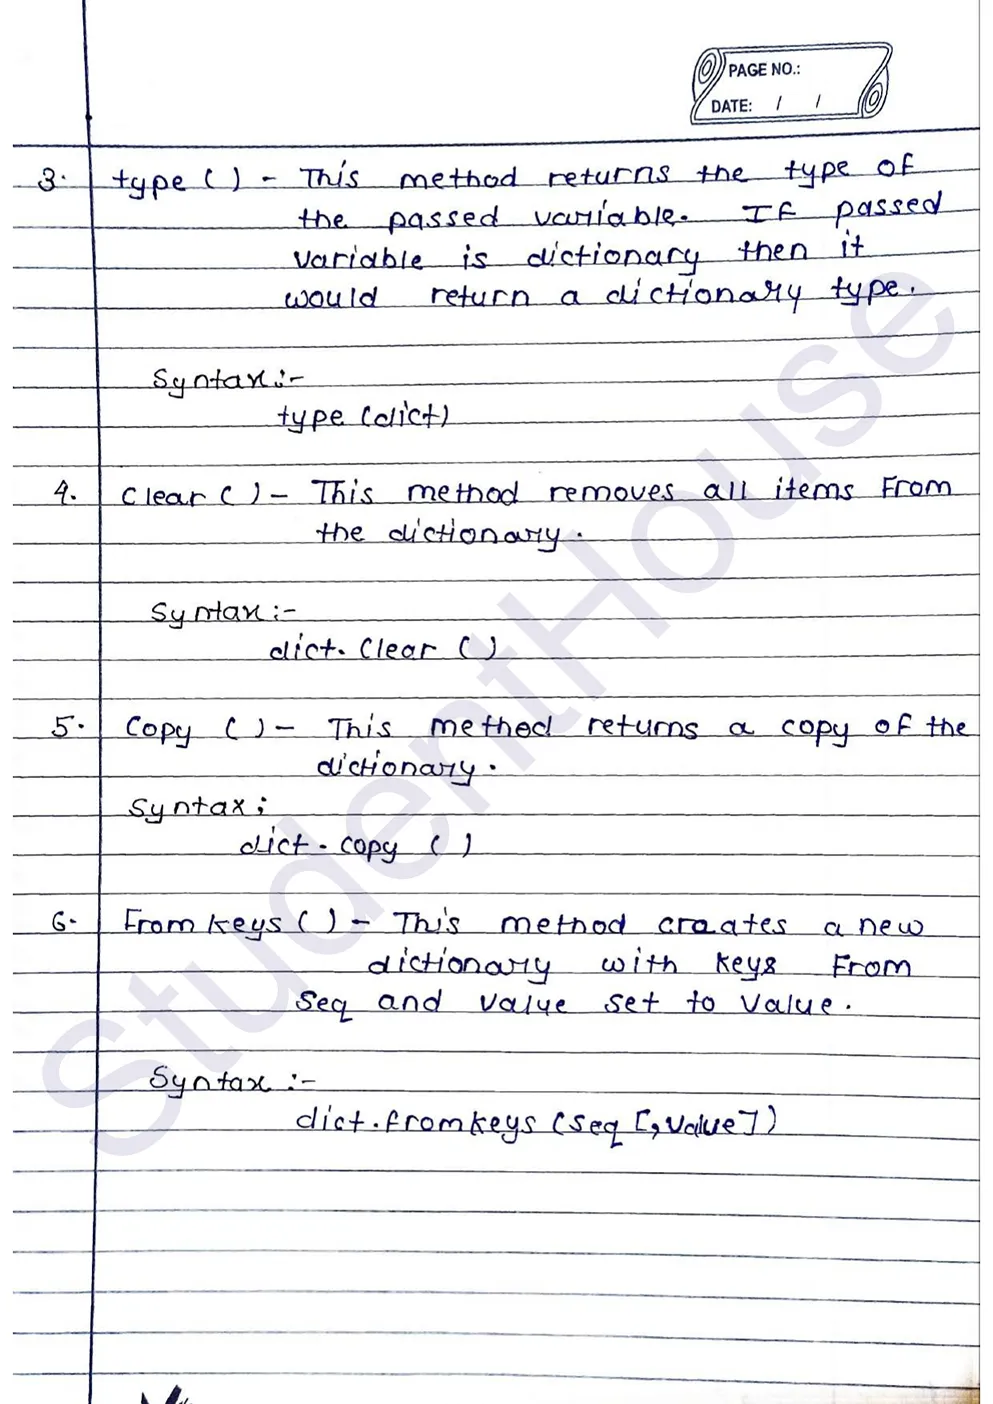 PAGE NO.:
DATE: / /
3. type ( ) - This method returns the type of
the passed variable. If passed
variable is dictionary then it
would return a dictionary type.
Syntax:-
type (dict)
4. Clear ( ) - This method removes all items From
the dictionary.
Syntax :-
dict. Clear ( )
5. Copy ( ) - This method returns a copy of the
dictionary.
Syntax ;
dict. copy ( )
6. From keys ( ) - This method creates a new
dictionary with keys From
Seq and value set to value.
Syntax :-
dict.fromkeys (seq [, value])
StudentHouse